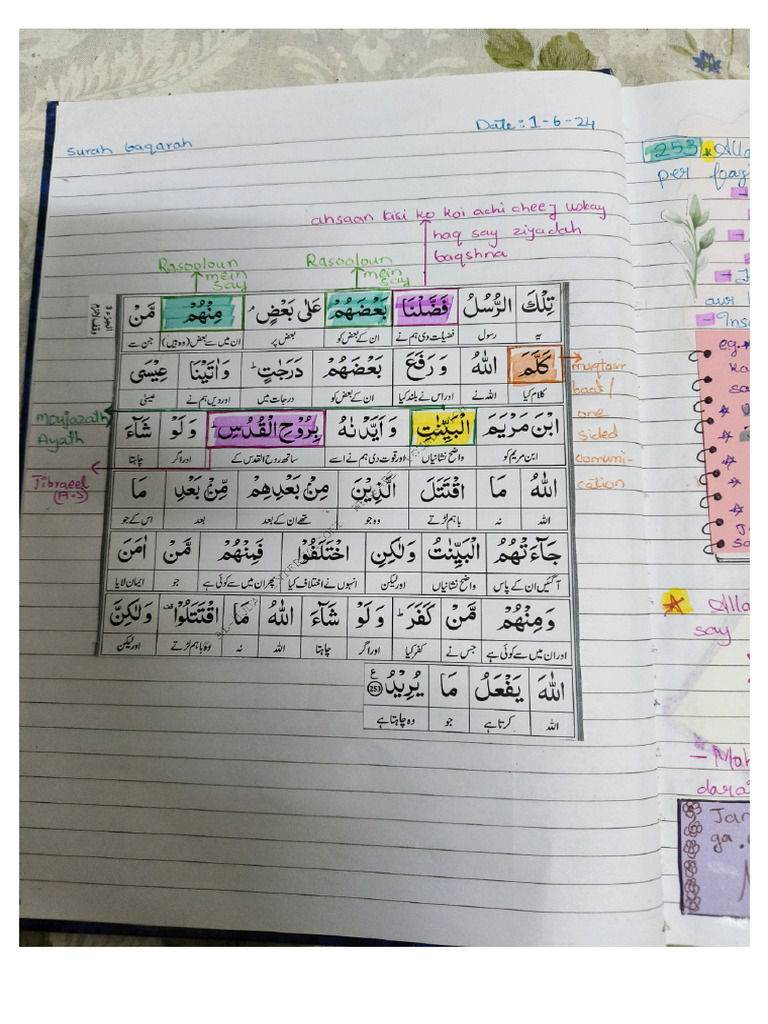 Date: 1-6-24
Surah baqarah
ahsaan kisi ko koi achi cheez uskay
haq say ziyadah
baqshna
Rasooloun
mein
say
Rasooloun
mein
say
تِلْكَ الرُّسُلُ فَضَّلْنَا بَعْضَهُمْ عَلٰى بَعْضٍ ۘ مِنْهُمْ مَّنْ
یہ رسول فضیلت دی ہم نے ان کے بعض کو بعض پر ان میں سے بعض (وہ ہیں) جن سے
كَلَّمَ اللّٰهُ وَرَفَعَ بَعْضَهُمْ دَرَجٰتٍ ؕ وَاٰتَيْنَا عِيْسَى
کلام کیا اللہ نے اور اس نے بلند کیا ان کے بعض کو درجات میں اور دیں ہم نے عیسیٰ
muqtasar
baat/
one
sided
comuni-
cation
ابْنَ مَرْيَمَ الْبَيِّنٰتِ وَاَيَّدْنٰهُ بِرُوْحِ الْقُدُسِ ؕ وَلَوْ شَآءَ
ابن مریم کو واضح نشانیاں اور قوت دی ہم نے اسے ساتھ روح القدس کے اور اگر چاہتا
Moujazath
Ayath
Jibraeel
(A-S)
اللّٰهُ مَا اقْتَتَلَ الَّذِيْنَ مِنْۢ بَعْدِهِمْ مِّنْۢ بَعْدِ مَا
اللہ نہ باہم لڑتے وہ جو تھے ان کے بعد بعد اس کے جو
جَآءَتْهُمُ الْبَيِّنٰتُ وَلٰكِنِ اخْتَلَفُوْا فَمِنْهُمْ مَّنْ اٰمَنَ
آ گئیں ان کے پاس واضح نشانیاں اور لیکن انہوں نے اختلاف کیا پھر ان میں سے کوئی ہے جو ایمان لایا
وَمِنْهُمْ مَّنْ كَفَرَ ؕ وَلَوْ شَآءَ اللّٰهُ مَا اقْتَتَلُوْا ۫ وَلٰكِنَّ
اور ان میں سے کوئی ہے جس نے کفر کیا اور اگر چاہتا اللہ نہ وہ باہم لڑتے اور لیکن
اللّٰهَ يَفْعَلُ مَا يُرِيْدُ ع ٢٥٣
اللہ کرتا ہے جو وہ چاہتا ہے
253
per
aur
eg.
say
dara
ga.